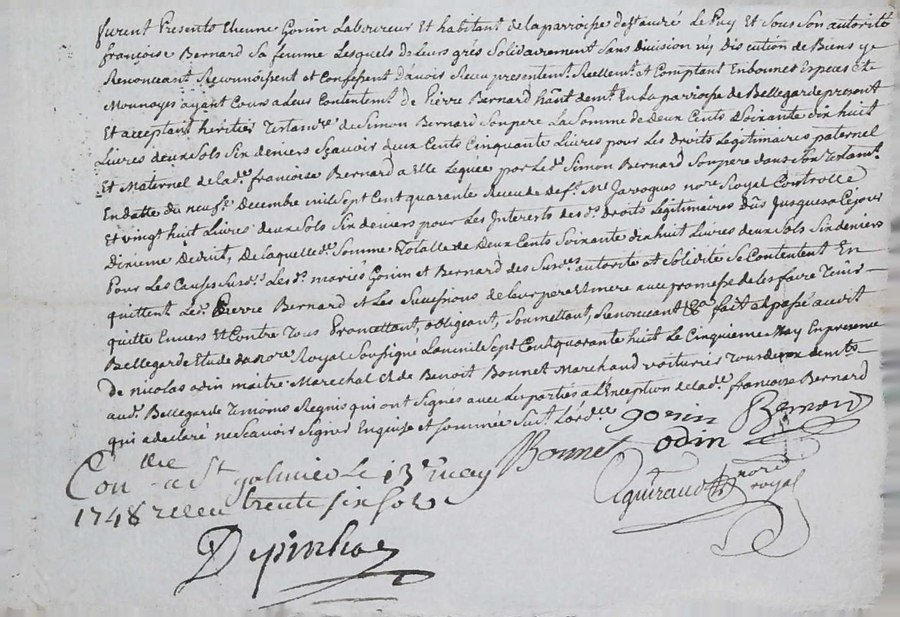 furent Presents Etienne Gonin Laboureur Et habitant de la parroisse de St andré Le Puy et Sous Son autorité
françoise Bernard Sa femme Lesquels de Leurs grés Solidairement Sans division ny discution de Biens y
Renonceant Reconnoissent et Confessent d'avoir Receu presentemt. Reellemt. et Comptant En bonnes Especes Et
Monnoyes ayant Cours a Leur Contentemt. de Pierre Bernard hânt demt. En La parroisse de Bellegarde present
Et acceptant heritier Testamre. de Simon Bernard Son pere La Somme de Deux Cents Soixante dix huit
Livres deux Sols Six deniers Sçavoir deux Cents Cinquante Livres pour Les Droits Legitimaires paternel
Et Maternel de lade. françoise Bernard a Elle Leguée par Led. Simon Bernard Son pere dans Son Testamt.
En datte du neufe. Decembre mil Sept Cent quarante Receu de deft. Me Javogues nore Royal Controllé
Et vingt huit Livres deux Sols Six deniers pour Les Interests des ds. Droits Legitimaires dûs Jusques a Ce jour
Dixieme Deduit, De laquelle de. Somme Totalle de Deux Cents Soixante dix huit Livres deux Sols Six deniers
Pour Les Causes Susds. Lesds. mariés Gonin et Bernard des Susds. autorité et Solidité Se Contentent En
quittent Led. Pierre Bernard et Les Successions de Leurs pere et mere avec promesse de les faire Tenir
quitte Envers Et Contre Tous Promettant, obligeant, Soumettant, Renonceant &a fait et passé audit
Bellegarde Etude du nore. Royal Soussigné L'an mil Sept Cent quarante huit Le Cinquieme May En presence
de nicolas odin maitre Marechal Et de Benoit Bonnet Marchand voiturier Tous deux demts.
aud. Bellegarde Temoins Requis qui ont Signés avec Les parties a L'Exception de lade. françoise Bernard
qui a declaré ne Scavoir Signer Enquise et Sommée Suivt. L'ordce
gonin Bernard
Bonnet odin
Conlle a St galmier Le 13e may
1748 receu trente six sols
nore
royal